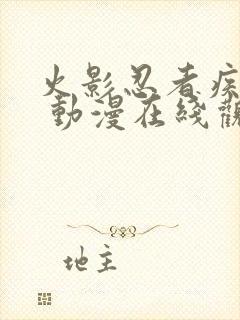 火影忍者疾
動漫在綫觀
地主